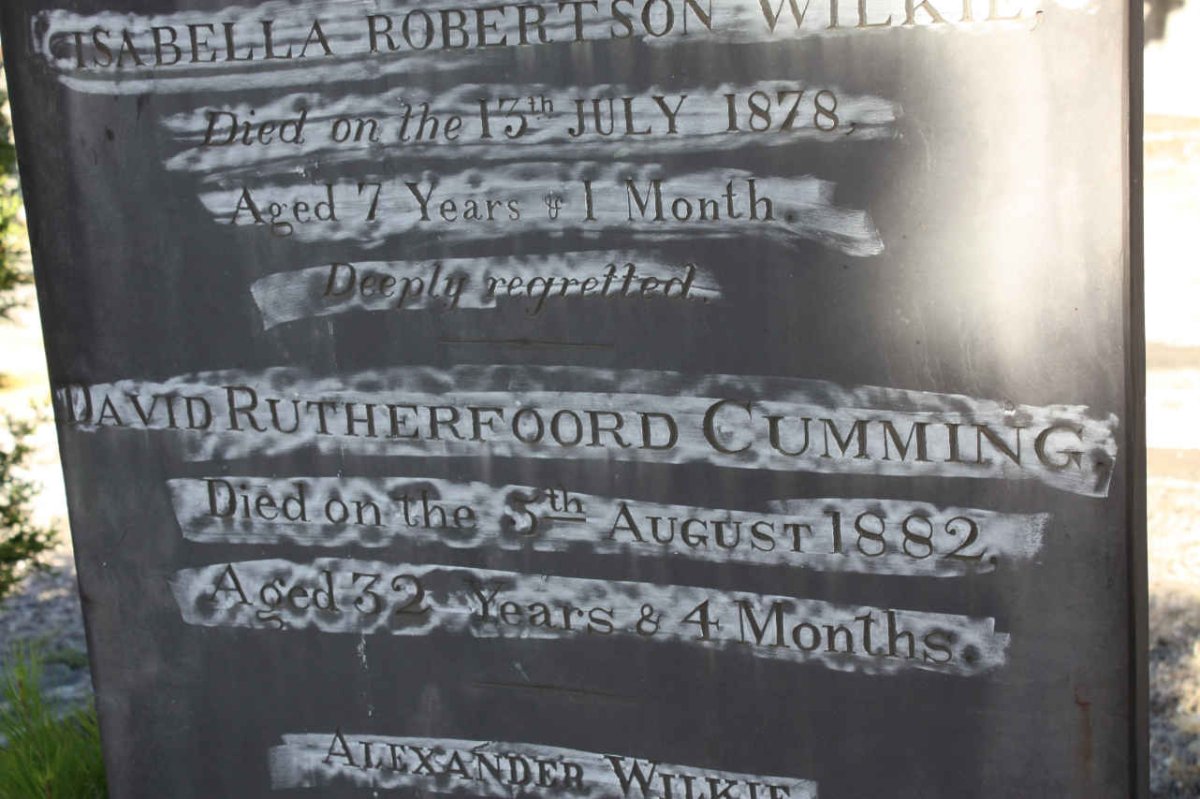 ISABELLA ROBERTSON WILKIE,
Died on the 13th JULY 1878,
Aged 7 Years & 1 Month.
Deeply regretted.
DAVID RUTHERFOORD CUMMING,
Died on the 5th AUGUST 1882,
Aged 32 Years & 4 Months.
ALEXANDER WILKIE